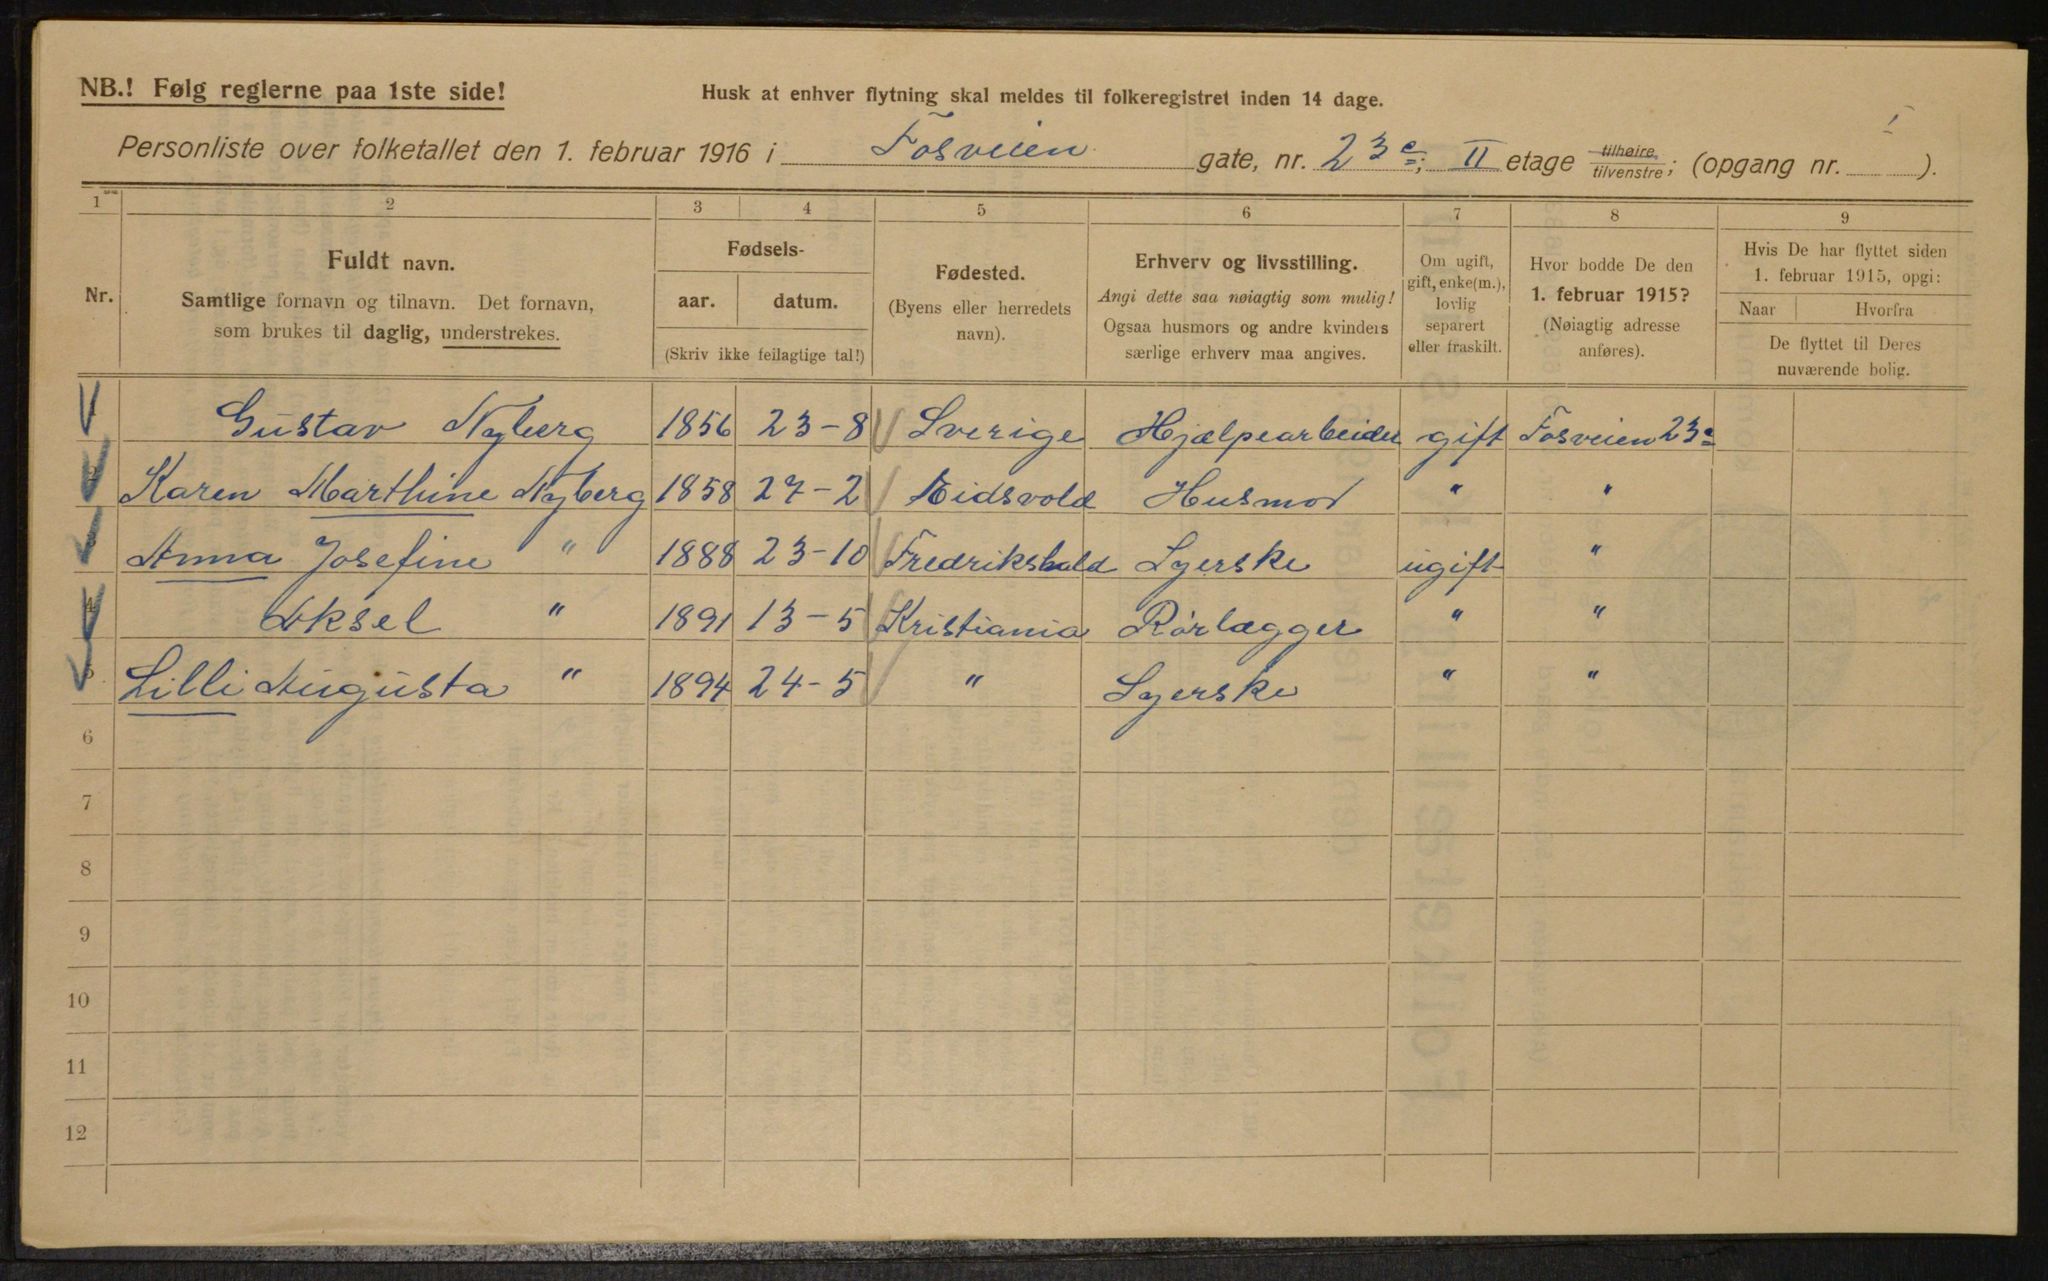 NB.! Følg reglerne paa 1ste side!
Husk at enhver flytning skal meldes til folkeregistret inden 14 dage.
Personliste over folketallet den 1. februar 1916 i Fosveien gate, nr. 23c; II etage tilhøire/tilvenstre; (opgang nr. ).
1 2 3 4 5 6 7 8 9
Nr.
Fuldt navn.
Samtlige fornavn og tilnavn. Det fornavn,
som brukes til daglig, understrekes.
Fødsels-
aar. datum.
(Skriv ikke feilagtige tal!)
Fødested.
(Byens eller herredets
navn).
Erhverv og livsstilling.
Angi dette saa nøiagtig som mulig!
Ogsaa husmors og andre kvinders
særlige erhverv maa angives.
Om ugift,
gift, enke(m.),
lovlig
separert
eller fraskilt.
Hvor bodde De den
1. februar 1915?
(Nøiagtig adresse
anføres).
Hvis De har flyttet siden
1. februar 1915, opgi:
Naar Hvorfra
De flyttet til Deres
nuværende bolig.
1 Gustav Nyberg 1856 23-8 Sverige Hjælpearbeider gift Fosveien 23c
2 Karen Marthine Nyberg 1858 27-2 Eidsvold Husmor " "
3 Anna Josefine " 1888 23-10 Fredrikshald Syerske ugift "
4 Aksel " 1891 13-5 Kristiania Rørlægger " "
5 Lilli Augusta " 1894 24-5 " Syerske " "
6
7
8
9
10
11
12